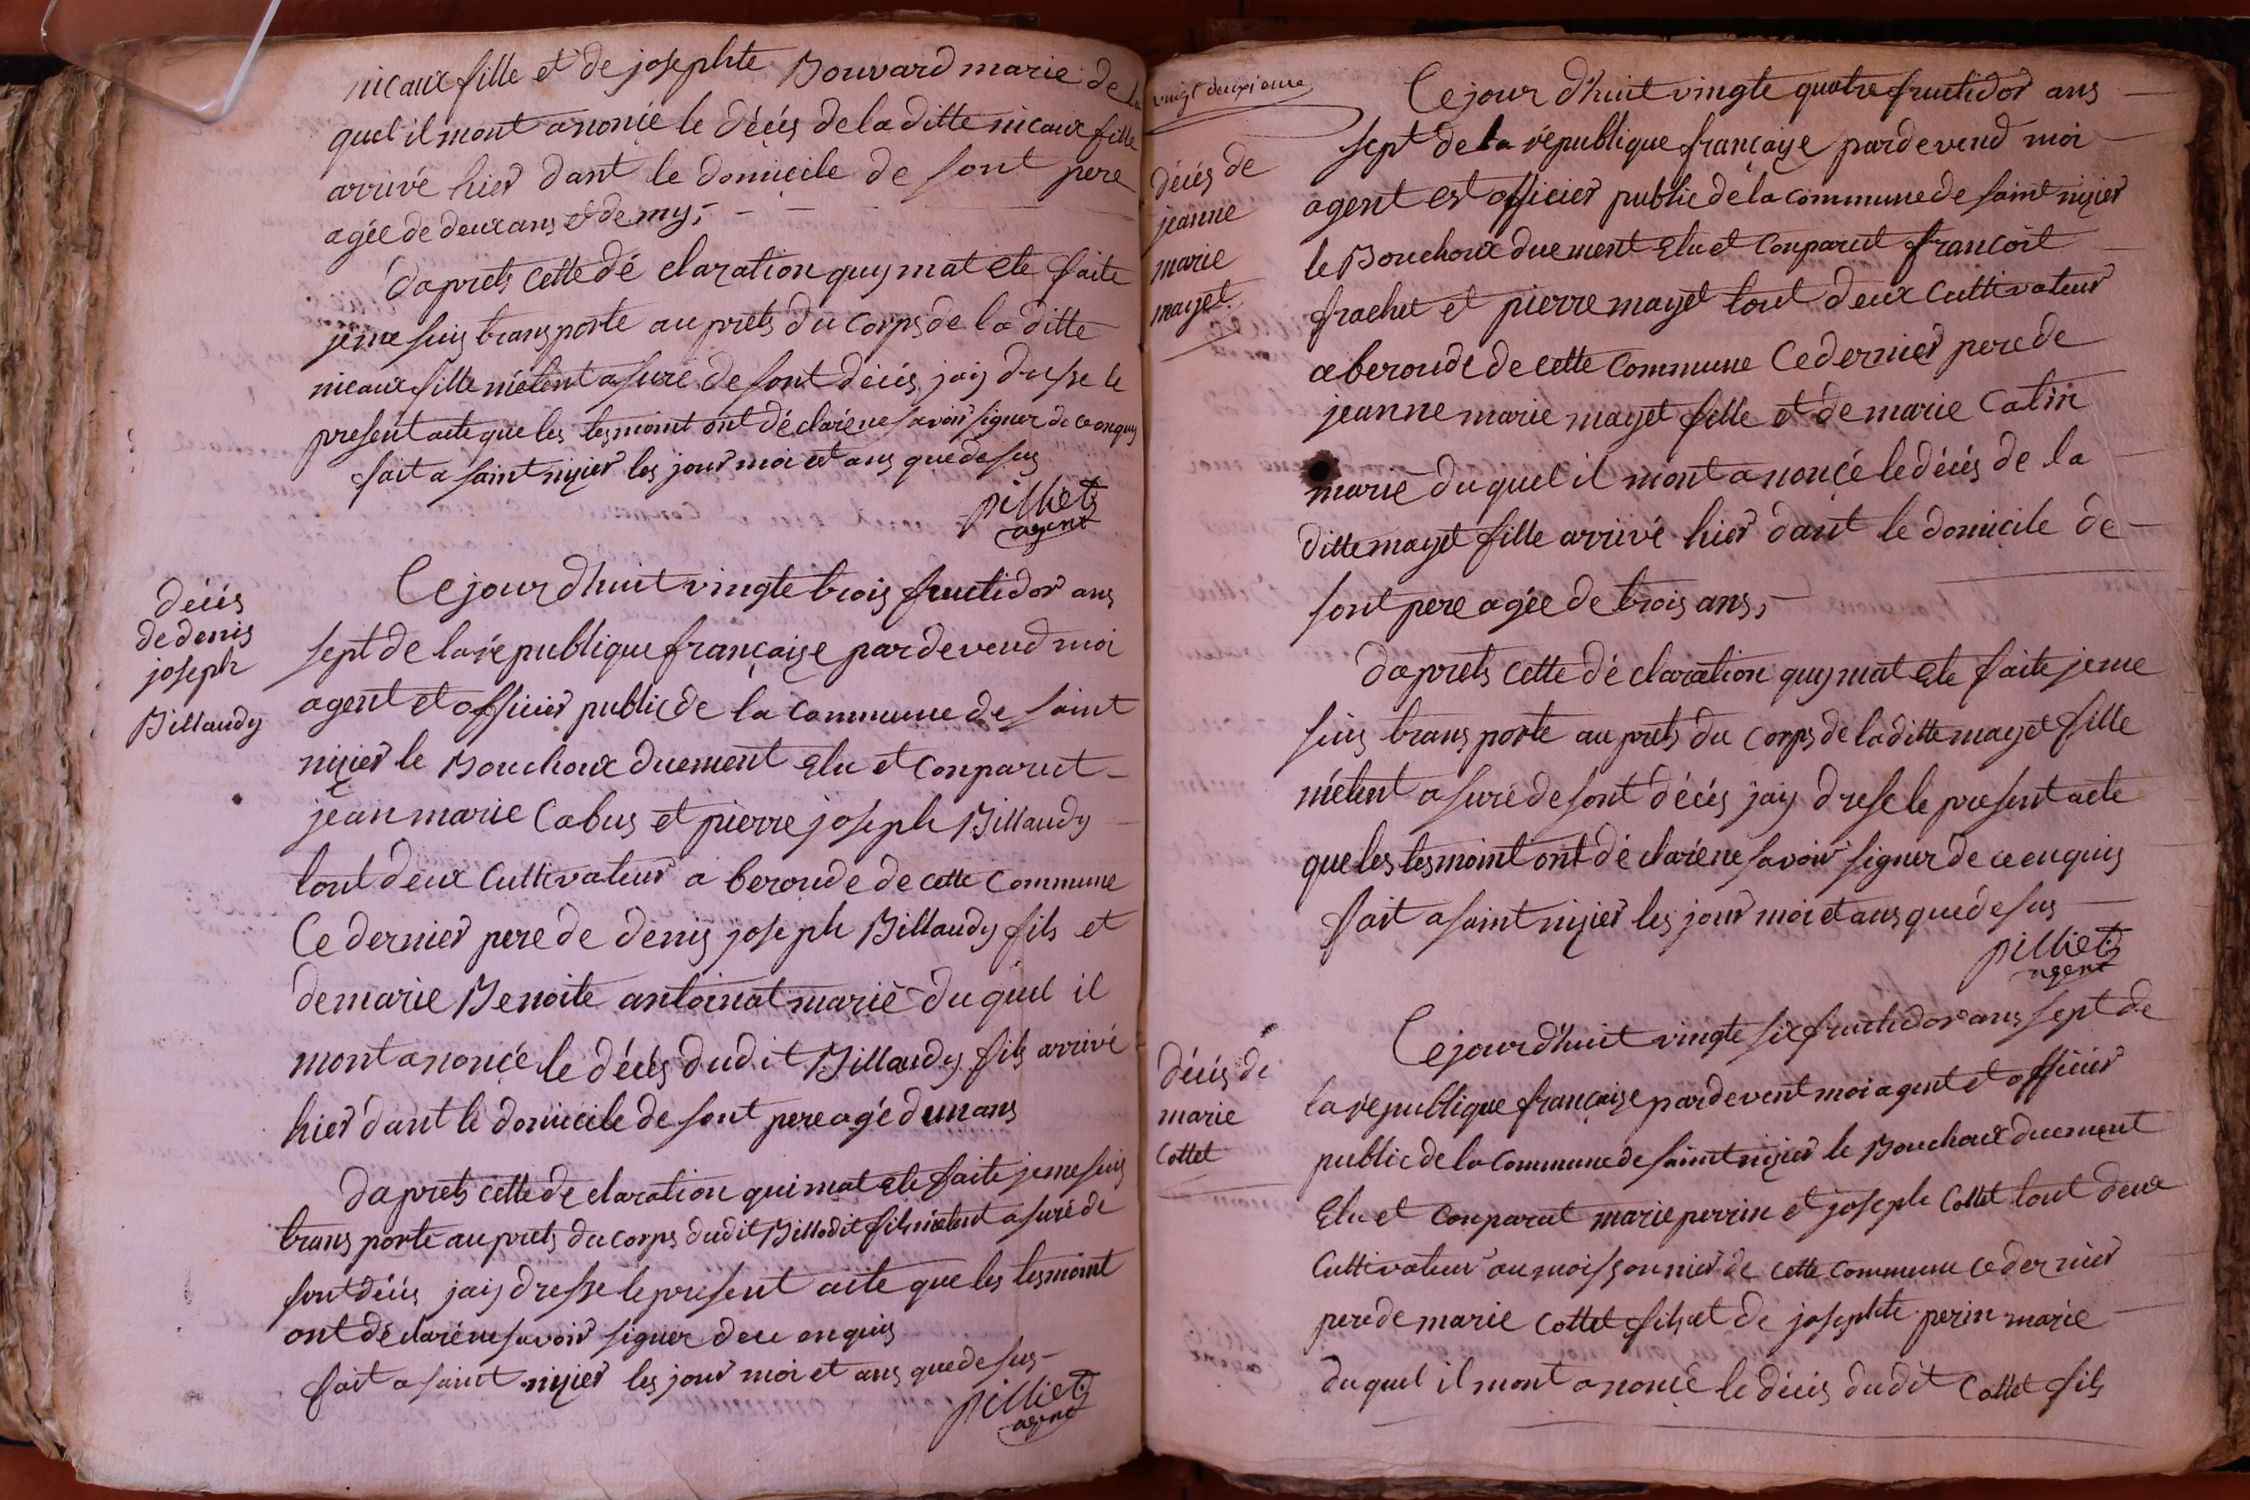 nicaux fille et de josephte Bouvard marie de la
quel il mont anoncé le décés de la ditte nicaux fille
arrivé hier dant le domicile de sont pere
agée de deux ans et demy,
daprets cette dé claration quy mat ete faite
jeme suis trans porte au prets du corps de la ditte
nicaux fille métent asuré de sont décés jaiy dresse le
present acte que les tesmoint ont dé claré ne savoir signer de ce enquy
fait a saint nizier les jour moi et ans que desus
pilliet
agent
décés
de denis
joseph
Billaudy
Cejourdhuit vingte trois fructidor ans
sept de la république françaize pardevend moi
agent et officier public de la commune de saint
nizier le Bouchoux duement Elu et Conparut
jean marie Cabus et pierre joseph Billaudy
tout deux Cultivateur a beroude de cette commune
Ce dernier pere de denis joseph Billaudy fils et
de marie Benoite antoinat marié du quel il
mont anoncé le décés dudit Billaudy fils arrivé
hier dant le domicile de sont pere agé dun ans
daprets cette de claration qui mat ete faite jeme suis
trans porte au prets du corps dudit Billodit fils métent asuré de
sont décés jaiy dresse le present acte que les tesmoint
ont dé claré ne savoir signer de ce enquis
fait a saint nizier les jour moi et ans que desus
pilliet
agent
vingt deuxieme
décés de
jeanne
marie
mayet
Cejour dhuit vingte quatre fructidor ans
sept de la république françaize pardevend moi
agent et officier public de la commune de saint nizier
le Bouchoux duement Elu et Conparut francoit
frachet et pierre mayet tout deux Cultivateur
a beroude de cette Commune Ce dernier pere de
jeanne marie mayet fille et de marie Catin
marié du quel il mont anoncé le décés de la
ditte mayet fille arrivé hier dant le domicile de
sont pere agée de trois ans,
daprets cette dé claration quy mat ete faite jeme
suis trans porte au prets du corps de la ditte mayet fille
métent asuré de sont décés jaiy dresse le present acte
que les tesmoint ont dé claré ne savoir signer de ce enquis
fait a saint nizier les jour moi et ans que desus
pilliet
agent
décés de
marie
Cottet
Cejourdhuit vingte six fructidor ans sept de
la république françaize pardevent moi agent et officier
public de la Commune de saint nizier le Bouchoux duement
Elu et Conparut marie perrin et joseph Cottet tout deux
Cultivateur au moissonnier de cette commune ce dernier
pere de marie Cottet fils et de josephte perin marié
du quel il mont anoncé le décés dudit Cottet fils